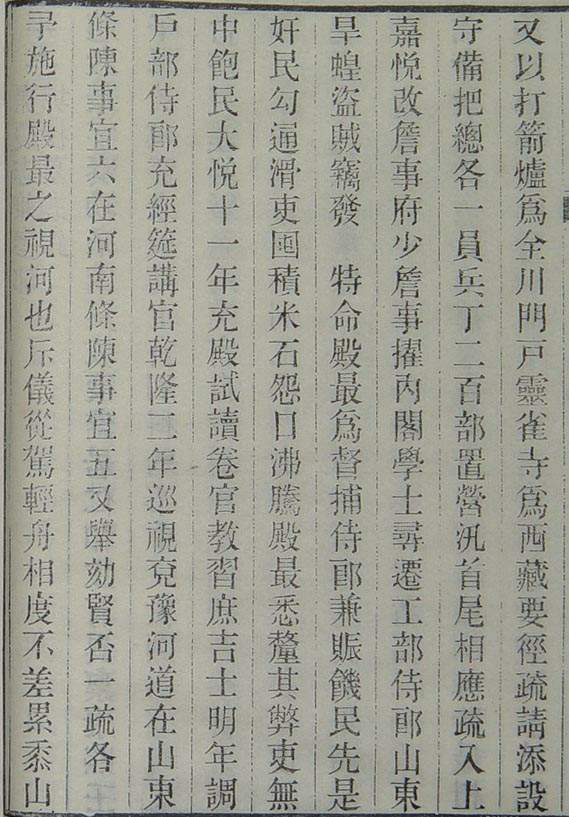 又以打箭爐爲全川門戶靈雀寺爲西藏要徑疏請添設
守備把總各一員兵丁二百部置營汛首尾相應疏入上
嘉悅改詹事府少詹事擢內閣學士尋遷工部侍郎山東
旱蝗盜賊竊發　特命殿最爲督捕侍郎兼賑饑民先是
奸民勾通滑吏囤積米石怨口沸騰殿最悉釐其弊吏無
中飽民大悅十一年充殿試讀卷官教習庶吉士明年調
戶部侍郎充經筵講官乾隆二年巡視兗豫河道在山東
條陳事宜六在河南條陳事宜五又舉劾賢否一疏各
予施行殿最之視河也斥儀從駕輕舟相度不差累黍山